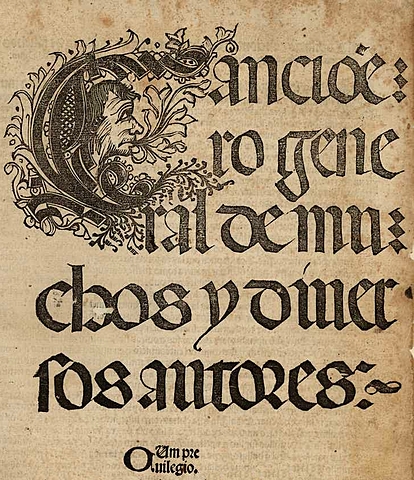 Canciõe:
ro gene
ral de mu:
chos y diuer
ſos autores:~
Cum pre
uilegio.